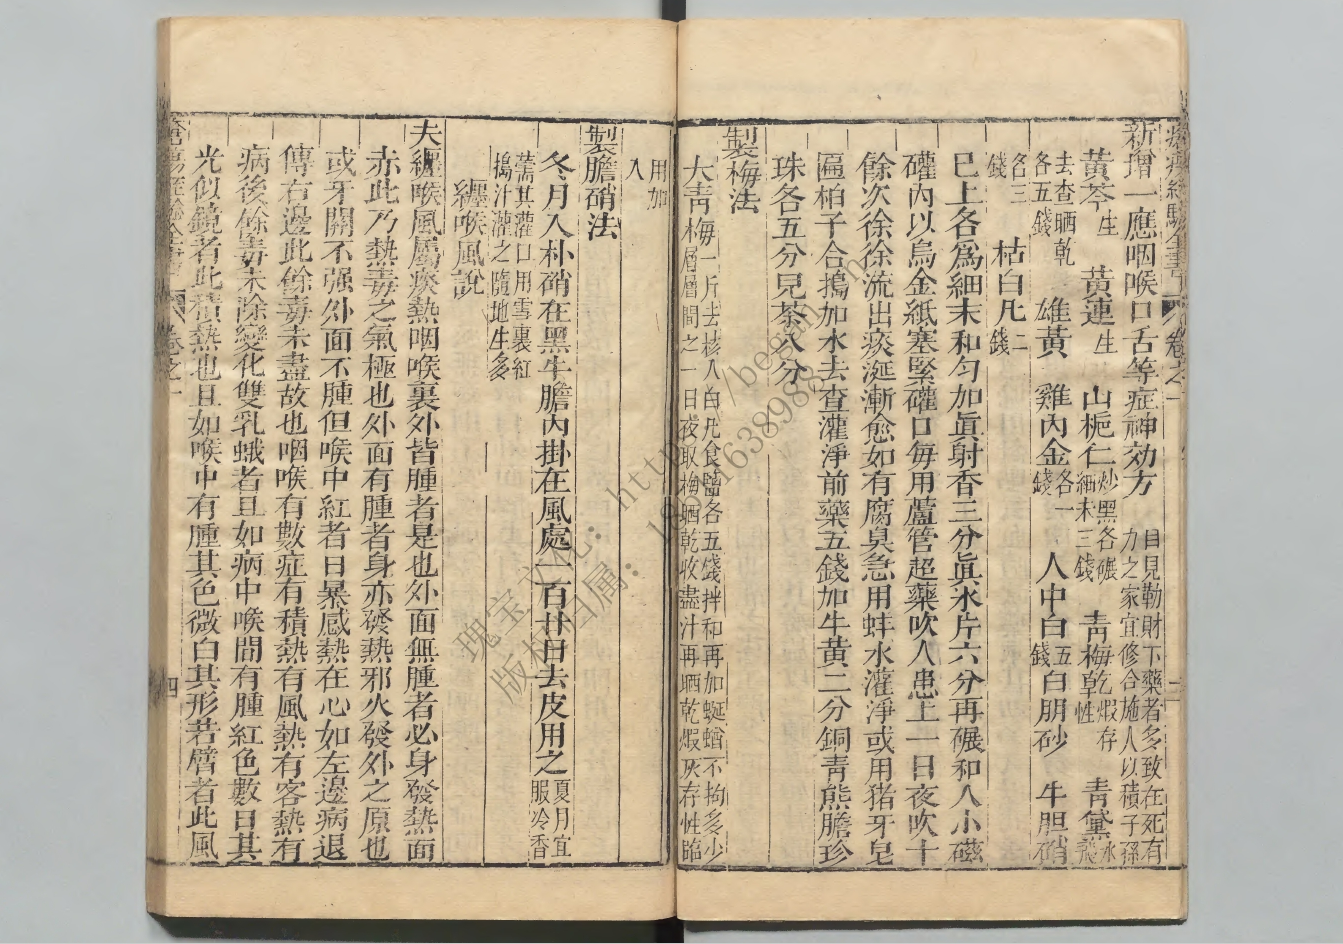 新增一應咽喉口舌等症神効方 目見勒財下藥者多致在死有
力之家宜修合施人以積子孫
黃芩生 黃連生 山梔仁炒黑各碾細末三錢 青梅乾煆存性 青黛水飛
去查晒乾各五錢 雄黃 雞內金各一錢 人中白五錢 白朋砂 牛胆硝
各三錢 枯白凡二錢
已上各爲細末和勻加眞射香三分眞氷片六分再碾和入小磁
礶內以烏金紙塞緊礶口每用蘆管超藥吹入患上一日夜吹十
餘次徐徐流出痰涎漸愈如有腐臭急用蚌水灌淨或用猪牙皂
匾柏子合搗加水去查灌淨前藥五錢加牛黃二分銅青熊膽珍
珠各五分兒茶八分
製梅法
大青梅一斤去核入白凡食鹽各五錢拌和再加蜒蝤不拘多少
層層間之一日夜取梅晒乾收盡汁再晒乾煆灰存性臨
用加
入
製膽硝法
冬月入朴硝在黑牛膽內掛在風處一百廿日去皮用之夏月宜服冷香
薷其灌口用雪裏紅
搗汁灌之隨地生多
纏喉風說
夫纒喉風屬痰熱咽喉裏外皆腫者是也外面無腫者必身發熱面
赤此乃熱毒之氣極也外面有腫者身亦發熱邪火發外之原也
或牙關不强外面不腫但喉中紅者曰暴感熱在心如左邊病退
傳右邊此餘毒未盡故也咽喉有數症有積熱有風熱有客熱有
病後餘毒未除變化雙乳蛾者且如病中喉間有腫紅色數日其
光似鏡者此積熱也且如喉中有腫其色微白其形若臂者此風
四
瑰宝文化:http://began.
版权归属:18616389888